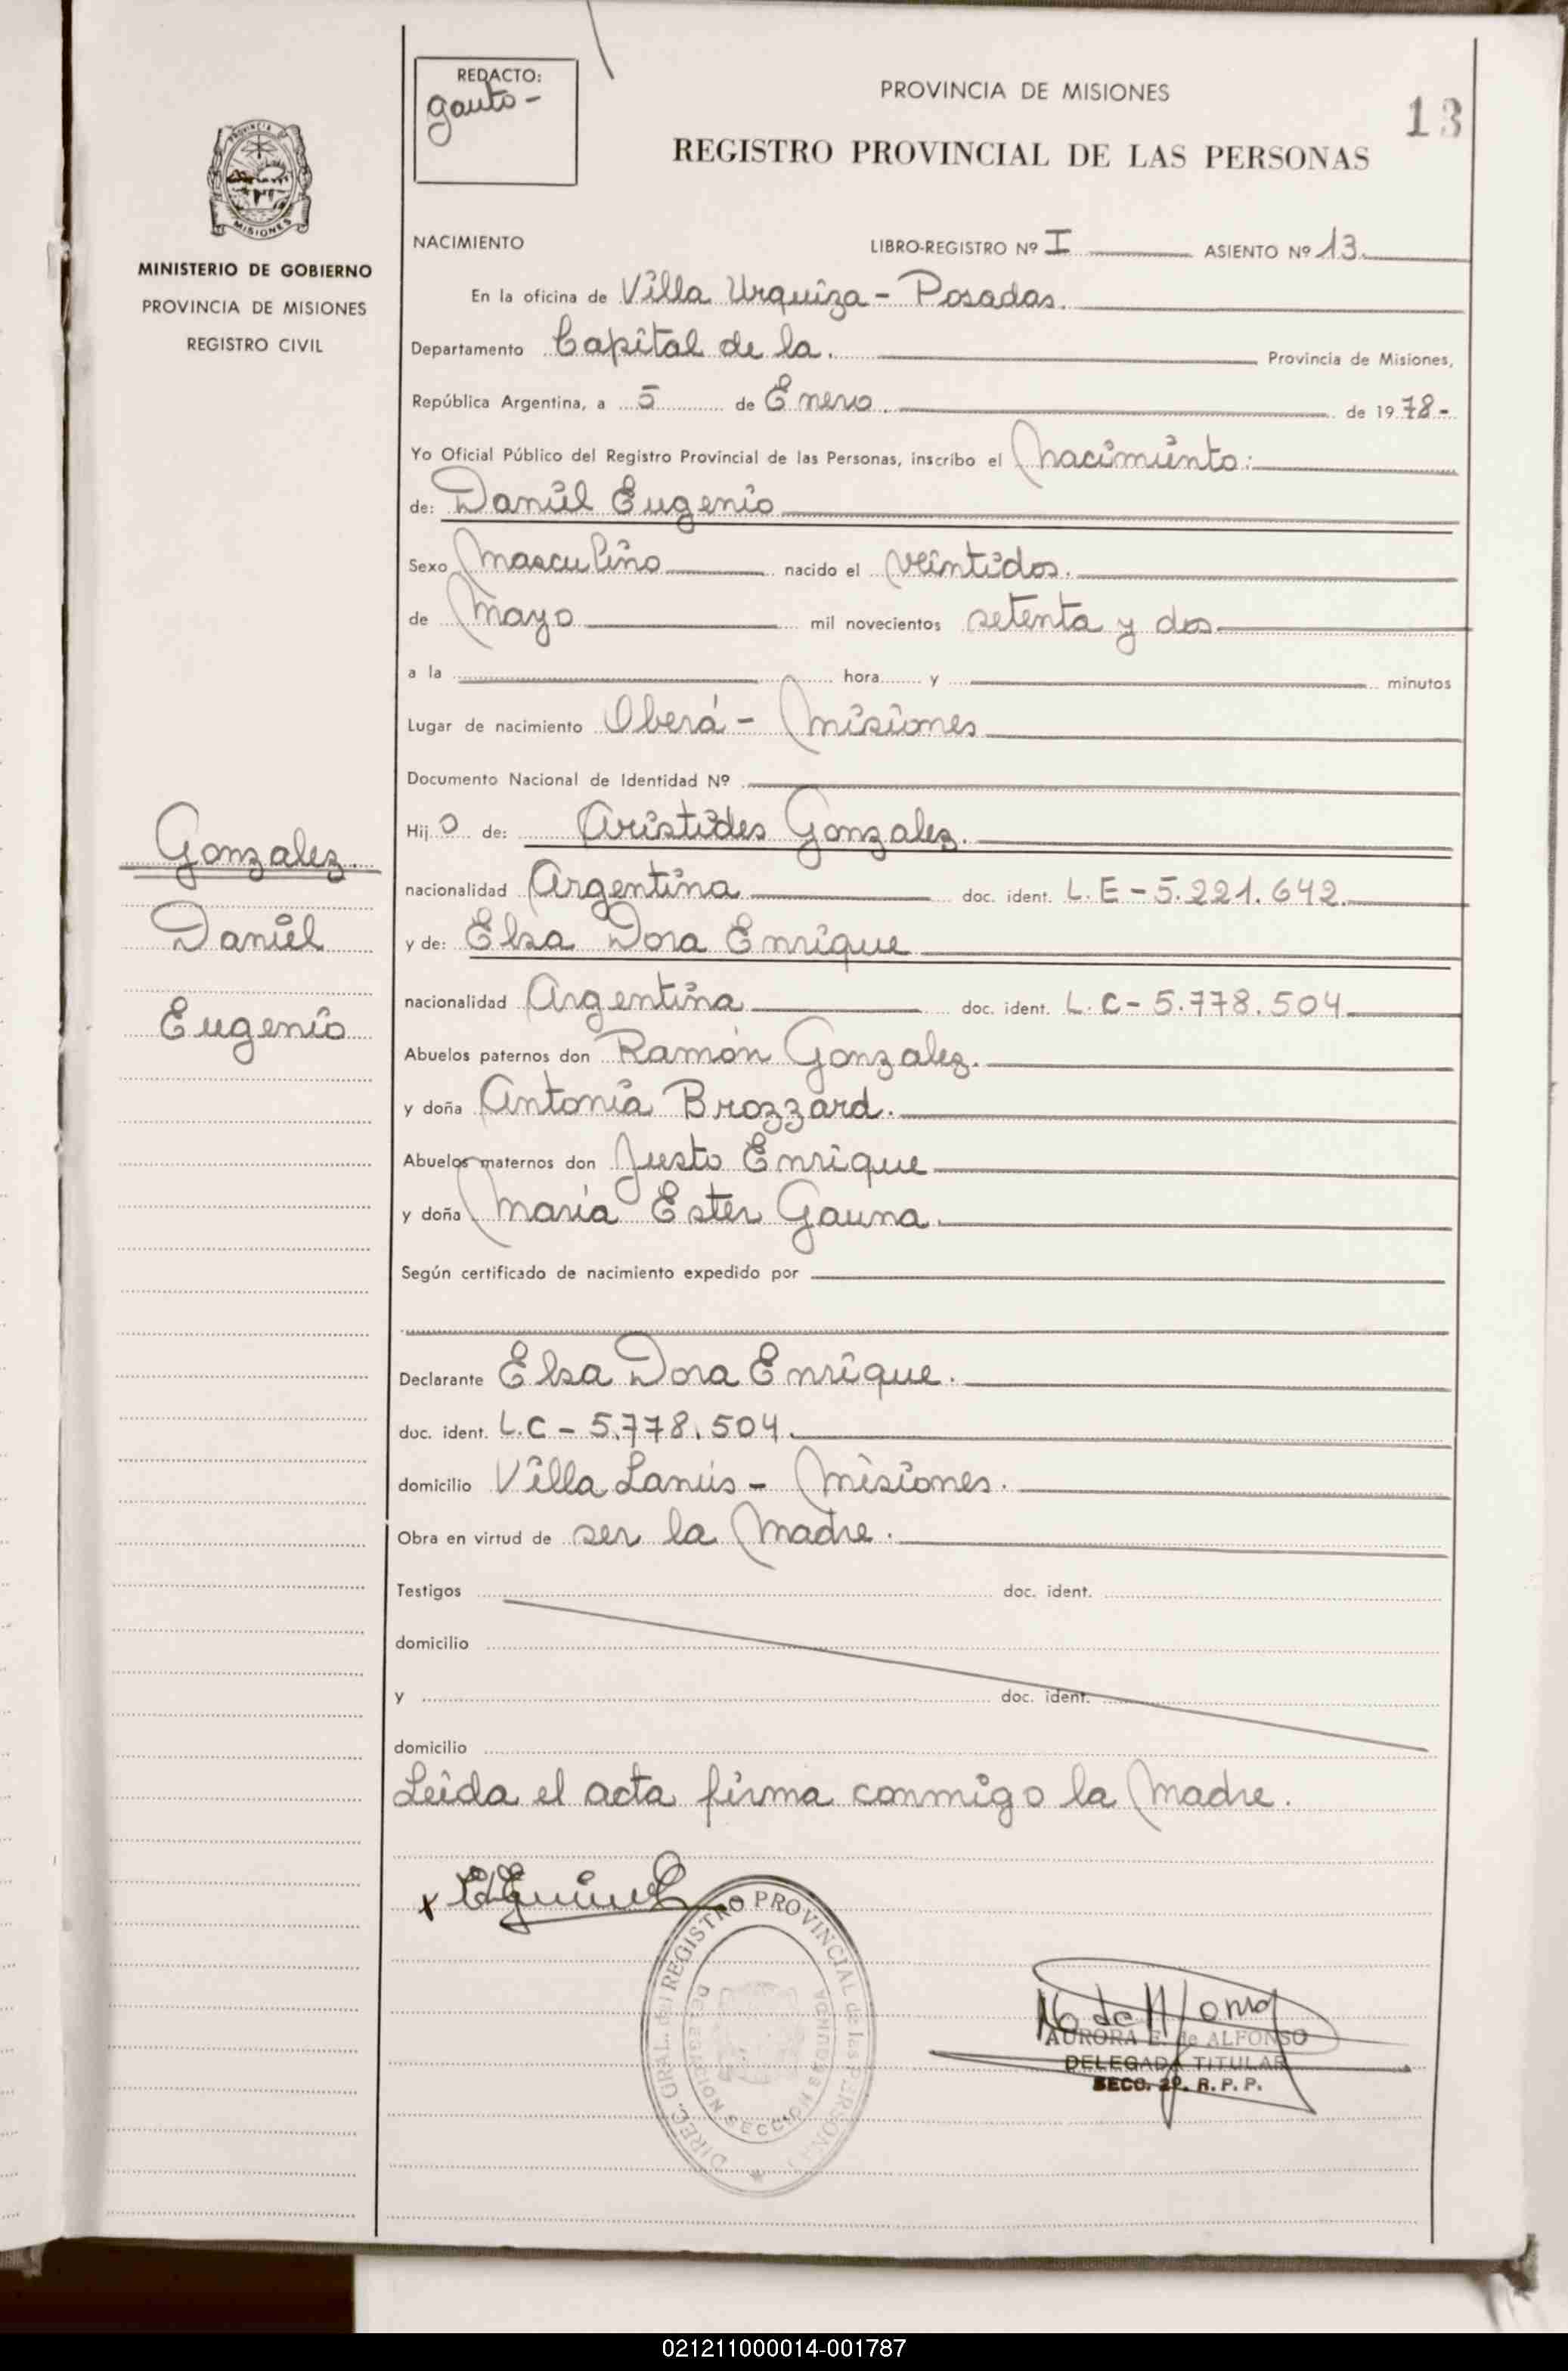 REDACTO:
Gauto -
PROVINCIA DE MISIONES
13
REGISTRO PROVINCIAL DE LAS PERSONAS
PROVINCIA DE
MISIONES
MINISTERIO DE GOBIERNO
PROVINCIA DE MISIONES
REGISTRO CIVIL
NACIMIENTO LIBRO-REGISTRO Nº I ASIENTO Nº 13.
En la oficina de Villa Urquiza - Posadas.
Departamento Capital de la. Provincia de Misiones,
República Argentina, a 5 de Enero. de 1978-
Yo Oficial Público del Registro Provincial de las Personas, inscribo el Nacimiento:
de: Daniel Eugenio
Sexo Masculino nacido el veintidos.
de Mayo mil novecientos setenta y dos
a la hora y minutos
Lugar de nacimiento Oberá - Misiones
Documento Nacional de Identidad Nº
Hijo de: Aristides Gonzalez.
nacionalidad Argentina doc. ident. L.E - 5.221.642.
y de: Elsa Dora Enrique
nacionalidad Argentina doc. ident. L.C - 5.778.504
Abuelos paternos don Ramón Gonzalez.
y doña Antonia Brozzard.
Abuelos maternos don Justo Enrique
y doña María Ester Gauna.
Según certificado de nacimiento expedido por
Declarante Elsa Dora Enrique.
doc. ident. L.C - 5.778.504.
domicilio Villa Lanús - Misiones.
Obra en virtud de ser la Madre.
Testigos doc. ident.
domicilio
y doc. ident.
domicilio
Leída el acta firma conmigo la Madre.
Gonzalez.
Daniel
Eugenio
DIREC. GRAL. del REGISTRO PROVINCIAL de las PERSONAS
DELEGACION SECCION SEGUNDA
AURORA E. de ALFONSO
DELEGADA TITULAR
SECC. 2º. R. P. P.
021211000014-001787